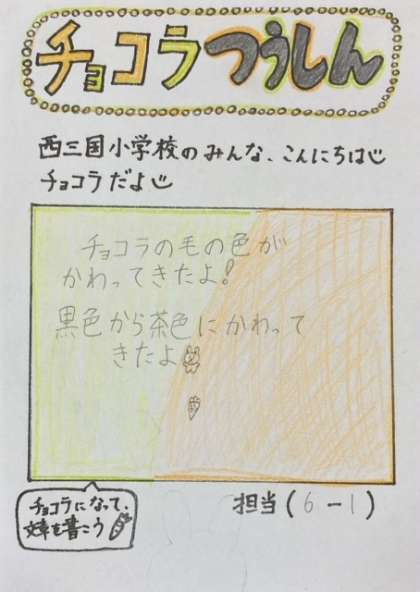 チョコラつうしん
西三国小学校のみんな、こんにちは
チョコラだよ
チョコラの毛の色が
かわってきたよ!
黒色から茶色にかわって
きたよ
チョコラになって、
文章を書こう
担当(6-1)